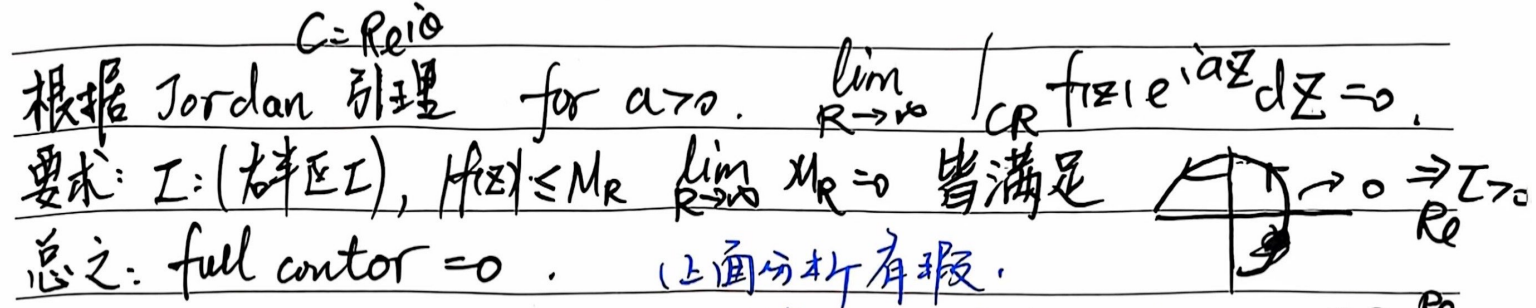 C=Re^{iθ}
根据 Jordan 引理 for a>0. lim_{R→∞} ∫_{CR} f(z)e^{iaz}dz=0.
要求: I:(右半区I), |f(z)|≤M_R lim_{R→∞} M_R=0 皆满足 → 0 ⇒ τ>0
Re
总之: full contor =0. (上面分析有瑕.